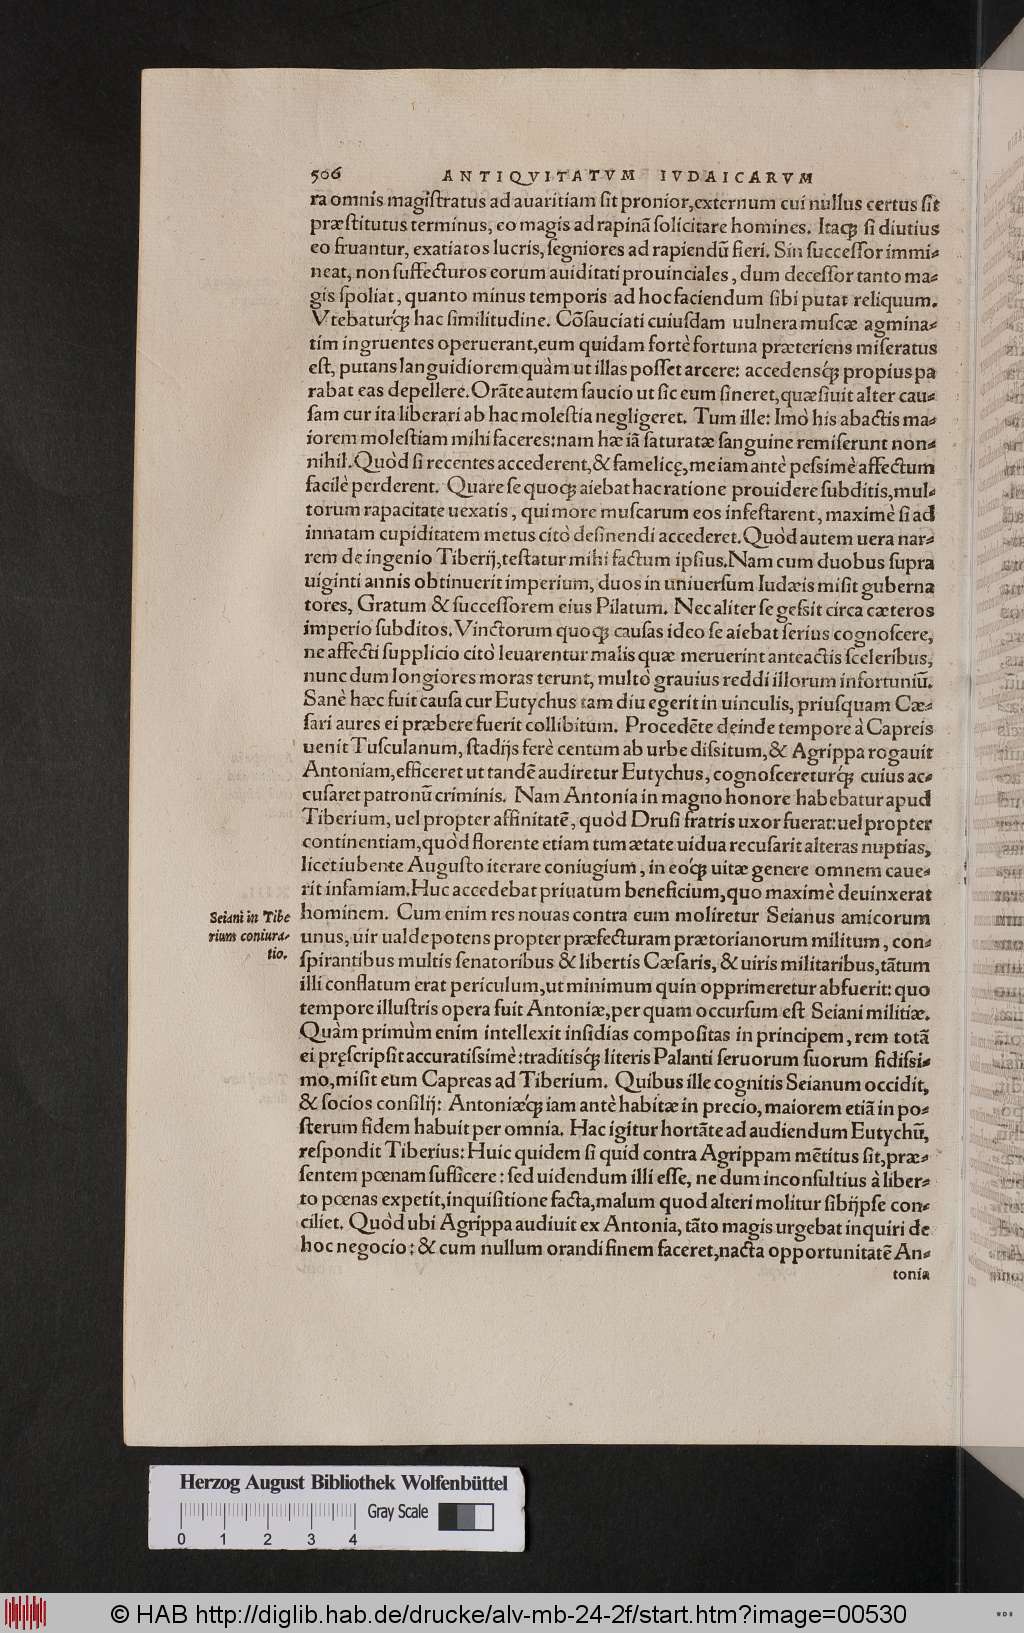 506 ANTIQVITATVM IVDAICARVM
ra omnis magiſtratus ad auaritiam ſit pronior, externum cui nullus certus ſit
præſtitutus terminus, eo magis ad rapinã ſolicitare homines. Itaqꝫ ſi diutius
eo fruantur, exatiatos lucris, ſegniores ad rapiendũ fieri. Sin ſucceſſor immi-
neat, non ſuffecturos eorum auiditati prouinciales, dum deceſſor tanto ma-
gis ſpoliat, quanto minus temporis ad hoc faciendum ſibi putat reliquum.
Vtebaturq́ꝫ hac ſimilitudine. Cõſauciati cuiuſdam uulnera muſcæ agmina-
tim ingruentes operuerant, eum quidam fortè fortuna præteriens miſeratus
eſt, putans languidiorem quàm ut illas poſſet arcere: accedensq́ꝫ propius pa
rabat eas depellere. Orãte autem ſaucio ut ſic eum ſineret, quæſiuit alter cau-
ſam cur ita liberari ab hac moleſtia negligeret. Tum ille: Imò his abactis ma-
iorem moleſtiam mihi faceres: nam hæ iã ſaturatæ ſanguine remiſerunt non-
nihil. Quòd ſi recentes accederent, & famelicę, me iam antè peſsimè affectum
facilè perderent. Quare ſe quoqꝫ aiebat hac ratione prouidere ſubditis, mul-
torum rapacitate uexatis, qui more muſcarum eos infeſtarent, maximè ſi ad
innatam cupiditatem metus citò deſinendi accederet. Quòd autem uera nar-
rem de ingenio Tiberij, teſtatur mihi factum ipſius. Nam cum duobus ſupra
uiginti annis obtinuerit imperium, duos in uniuerſum Iudæis miſit guberna
tores, Gratum & ſucceſſorem eius Pilatum. Nec aliter ſe geſsit circa cæteros
imperio ſubditos. Vinctorum quoqꝫ cauſas ideo ſe aiebat ſerius cognoſcere,
ne affecti ſupplicio citò leuarentur malis quæ meruerint anteactis ſceleribus,
nunc dum longiores moras terunt, multò grauius reddi illorum infortuniũ.
Sanè hæc fuit cauſa cur Eutychus tam diu egerit in uinculis, priuſquam Cæ-
ſari aures ei præbere fuerit collibitum. Procedẽte deinde tempore à Capreis
uenit Tuſculanum, ſtadijs ferè centum ab urbe diſsitum, & Agrippa rogauit
Antoniam, efficeret ut tandẽ audiretur Eutychus, cognoſcereturq́ꝫ cuius ac-
cuſaret patronũ criminis. Nam Antonia in magno honore habebatur apud
Tiberium, uel propter affinitatẽ, quòd Druſi fratris uxor fuerat: uel propter
continentiam, quòd florente etiam tum ætate uidua recuſarit alteras nuptias,
licet iubente Auguſto iterare coniugium, in eoq́ꝫ uitæ genere omnem caue-
rit infamiam. Huc accedebat priuatum beneficium, quo maximè deuinxerat
hominem. Cum enim res nouas contra eum moliretur Seianus amicorum
unus, uir ualde potens propter præfecturam prætorianorum militum, con-
ſpirantibus multis ſenatoribus & libertis Cæſaris, & uiris militaribus, tãtum
illi conflatum erat periculum, ut minimum quin opprimeretur abfuerit: quo
tempore illuſtris opera fuit Antoniæ, per quam occurſum eſt Seiani militiæ.
Quàm primùm enim intellexit inſidias compoſitas in principem, rem totã
ei pręſcripſit accuratiſsimè: traditisq́ꝫ literis Palanti ſeruorum ſuorum fidiſsi-
mo, miſit eum Capreas ad Tiberium. Quibus ille cognitis Seianum occidit,
& ſocios conſilij: Antoniæq́ꝫ iam antè habitæ in precio, maiorem etiã in po-
ſterum fidem habuit per omnia. Hac igitur hortãte ad audiendum Eutychũ,
reſpondit Tiberius: Huic quidem ſi quid contra Agrippam mẽtitus ſit, præ-
ſentem pœnam ſufficere: ſed uidendum illi eſſe, ne dum inconſultius à liber-
to pœnas expetit, inquiſitione facta, malum quod alteri molitur ſibijpſe con-
ciliet. Quòd ubi Agrippa audiuit ex Antonia, tãto magis urgebat inquiri de
hoc negocio: & cum nullum orandi finem faceret, nacta opportunitatẽ An-
tonia
Seiani in Tibe
rium coniura-
tio.
Herzog August Bibliothek Wolfenbüttel
Gray Scale
0 1 2 3 4
© HAB http://diglib.hab.de/drucke/alv-mb-24-2f/start.htm?image=00530